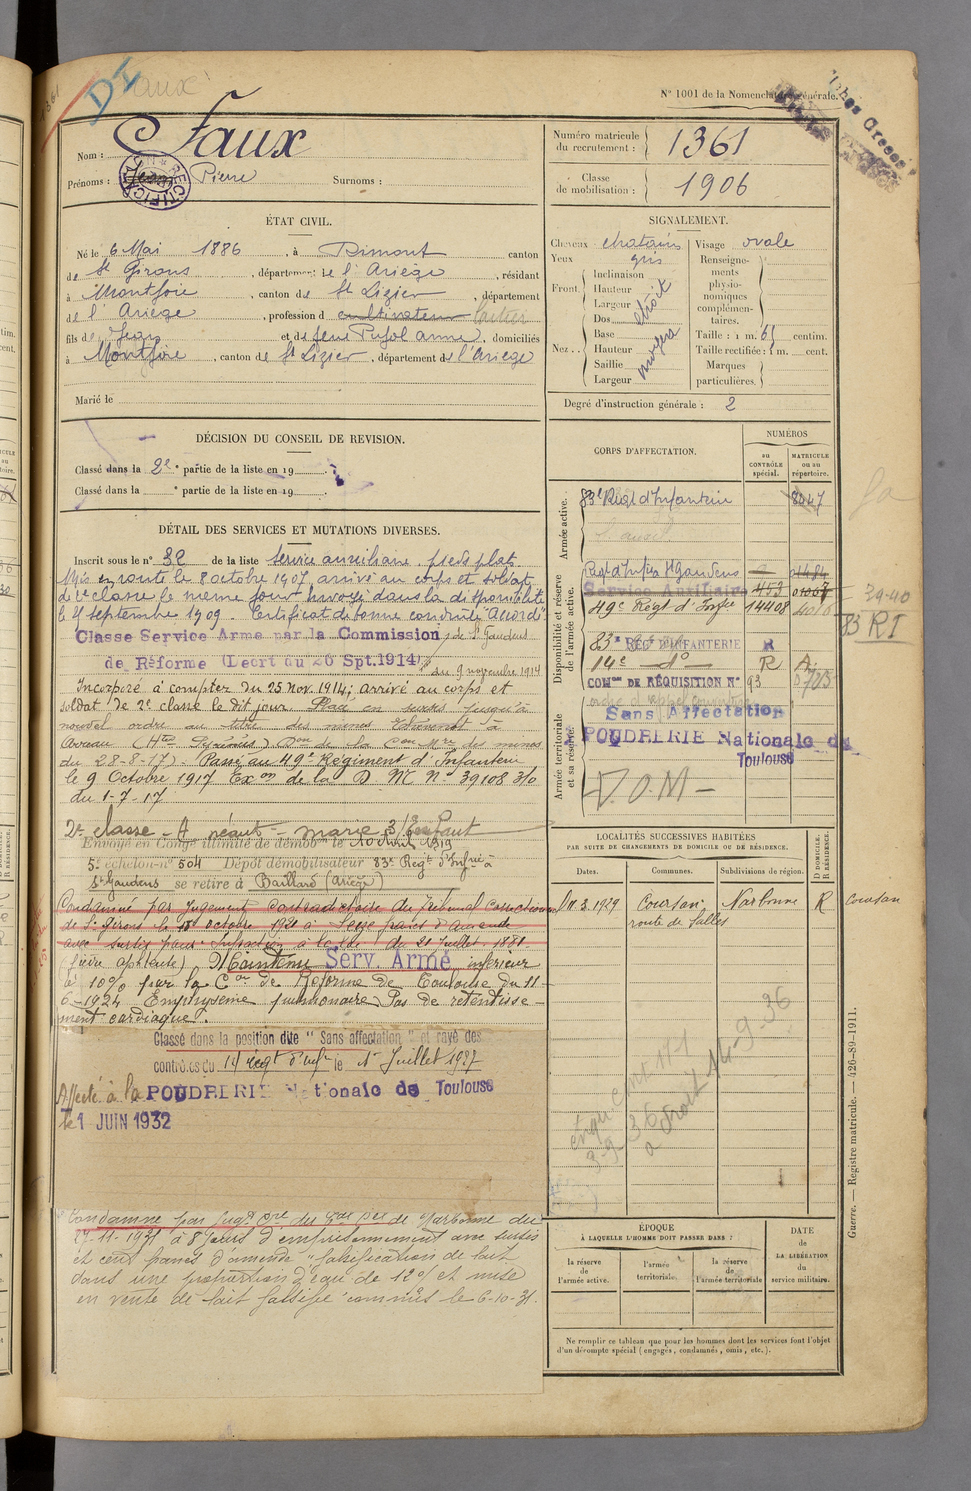 N° 1001 de la Nomenclature générale.
1361
DI
Faux
Nom : Faux
Prénoms : Pierre Surnoms :
RECTIFICATION
Numéro matricule du recrutement : 1361
Classe de mobilisation : 1906
ÉTAT CIVIL.
Né le 6 Mai 1886, à Rimont canton
de St Girons, département de l'Ariège, résidant
à Montfoie, canton de St Lizier, département
de l'Ariège, profession d cultivateur laitier
fils de Jean et de feue Pujol Anne, domiciliés
à Montfoie, canton de St Lizier, département de l'Ariège
Marié le
SIGNALEMENT.
Cheveux chatains
Yeux gris
Front
Inclinaison
Hauteur
Largeur
étroit
Nez
Dos
Base
Hauteur
Saillie
Largeur
moyen
Visage ovale
Renseignements physionomiques complémentaires.
Taille : 1 m. 61 centim.
Taille rectifiée : 1 m. cent.
Marques particulières.
Degré d'instruction générale : 2
DÉCISION DU CONSEIL DE REVISION.
Classé dans la 2e partie de la liste en 19
Classé dans la e partie de la liste en 19
DÉTAIL DES SERVICES ET MUTATIONS DIVERSES.
Inscrit sous le n° 32 de la liste Service auxiliaire, pieds plats
Mis en route le 8 octobre 1907, arrivé au corps et soldat
de 2e classe le même jour. Envoyé dans la disponibilité
le septembre 1909. Certificat de bonne conduite "Accordé"
Classe Service Armé par la Commission de St Gaudens
de Réforme (Décret du 26 Spt. 1914) du 9 novembre 1914
Incorporé à compter du 25 Nov. 1914; arrivé au corps et
soldat de 2e classe le dit jour. Placé en sursis jusqu'à
nouvel ordre au titre des mines à
(Htes Pyrénées) Don de la Con Mre des mines
du 28-8-17). Passé au 49e Régiment d'Infanterie
le 9 Octobre 1917 Exon de la D. M. N° 39108 3/0
du 1-7-17
2e classe - A néant - marié 3/ Enfant
Envoyé en Congé illimité de démobon le 10 Avril 1919
5e échelon n° 504 Dépôt démobilisateur 83e Régt d'Infrie à
St Gaudens se retire à Baillard (Ariège)
Condamné par Jugement contradictoire du Tribunal correctionnel
de St Girons le 18 octobre 1921 à Seize francs d'amende
avec sursis pour Infraction à la loi du 21 Juillet 1881
(fièvre aphteuse) Maintenu Serv. Armé inférieur
à 10% par la Con de Réforme de Toulouse du 11-
6-1924 Emphysème pulmonaire. Pas de retentisse-
ment cardiaque.
Classé dans la position dite "Sans affectation" et rayé des
controles du 14 régt d'Infie le 1er Juillet 1927
Affecté à la POUDRERIE Nationale de Toulouse
le 1 JUIN 1932
Condamné par Jugt Cre du Bal Cel de Narbonne du
27-11-1931 à 8 jours d'emprisonnement avec sursis
et cent francs d'amende "falsification de lait
dans une proportion d'eau de 12% et mise
en vente de lait falsifié" commis le 6-10-31.
CORPS D'AFFECTATION.
NUMÉROS
au CONTRÔLE spécial.
MATRICULE ou au répertoire.
Armée active.
83e Régt d'Infanterie 8047
Disponibilité et réserve de l'armée active.
Régt d'Infrie St Gaudens
Service Auxiliaire 453
49e Régt d'Infie 14408
83e RÉGt D'INFANTERIE R
14e do R
COMon DE RÉQUISITION N° 93
Armée territoriale et sa réserve.
Sans Affectation
POUDRERIE Nationale de
Toulouse
D.O.M
39-40
83 RI
LOCALITÉS SUCCESSIVES HABITÉES
PAR SUITE DE CHANGEMENTS DE DOMICILE OU DE RÉSIDENCE.
Dates.
Communes.
Subdivisions de région.
D DOMICILE. R RÉSIDENCE.
11.3.1929 Coursan Narbonne R Coursan
route de Salles
3-9-36
14-9-36
ÉPOQUE
À LAQUELLE L'HOMME DOIT PASSER DANS :
la réserve de l'armée active.
l'armée territoriale.
la réserve de l'armée territoriale
DATE de LA LIBÉRATION du service militaire.
Ne remplir ce tableau que pour les hommes dont les services font l'objet
d'un décompte spécial (engagés, condamnés, omis, etc.).
Guerre. — Registre matricule. — 426-89-1911.